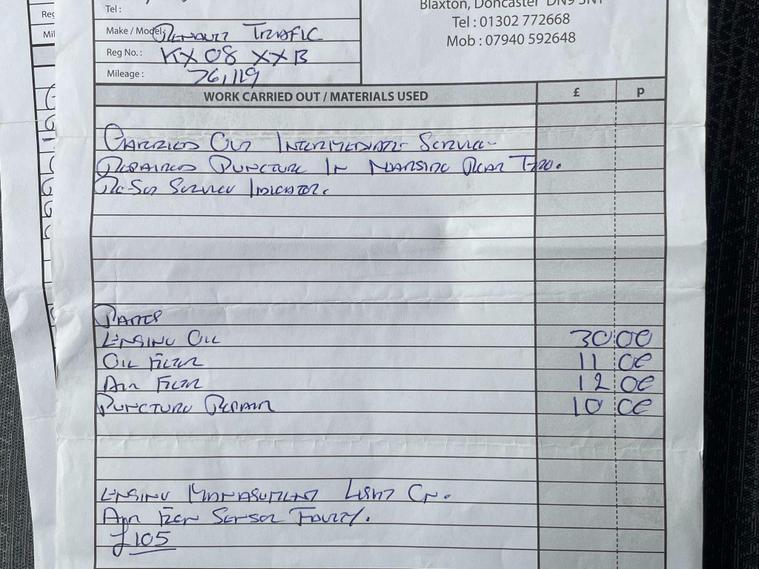 Tel :
Blaxton, Doncaster DN9 3NT
Tel : 01302 772668
Mob : 07940 592648
Make / Model: Renault Trafic
Reg No. : KX 08 XXB
Mileage : 76,119
Reg
Mil
WORK CARRIED OUT / MATERIALS USED £ p
Carried Out Intermediate Service
Repaired Puncture In Nearside Rear Tyre.
Re-Set Service Indicator.
Parts
Engine Oil 30 00
Oil Filter 11 00
Air Filter 12 00
Puncture Repair 10 00
Engine Management Light On.
Air Flow Sensor Faulty.
£105